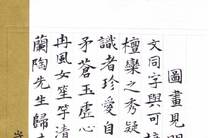 圖畫見明
文同字與可梓
檀欒之秀疑
識者珍愛自
矛蒼玉虛心
冉風女竽清
蘭陶先生歸